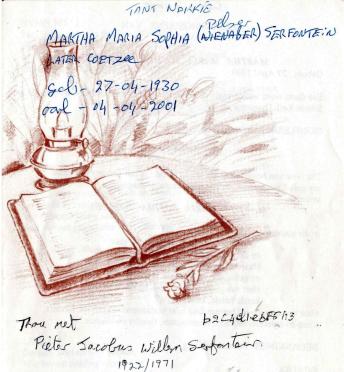 TANT NARKIE
Pelser
MARTHA MARIA SOPHIA (NIENABER) SERFONTEIN
LATER COETZEE
geb - 27-04-1930
oorl - 04-04-2001
b2C4d1e6F5h3
Thou met
Pieter Jacobus Willem Serfontein
1922/1971